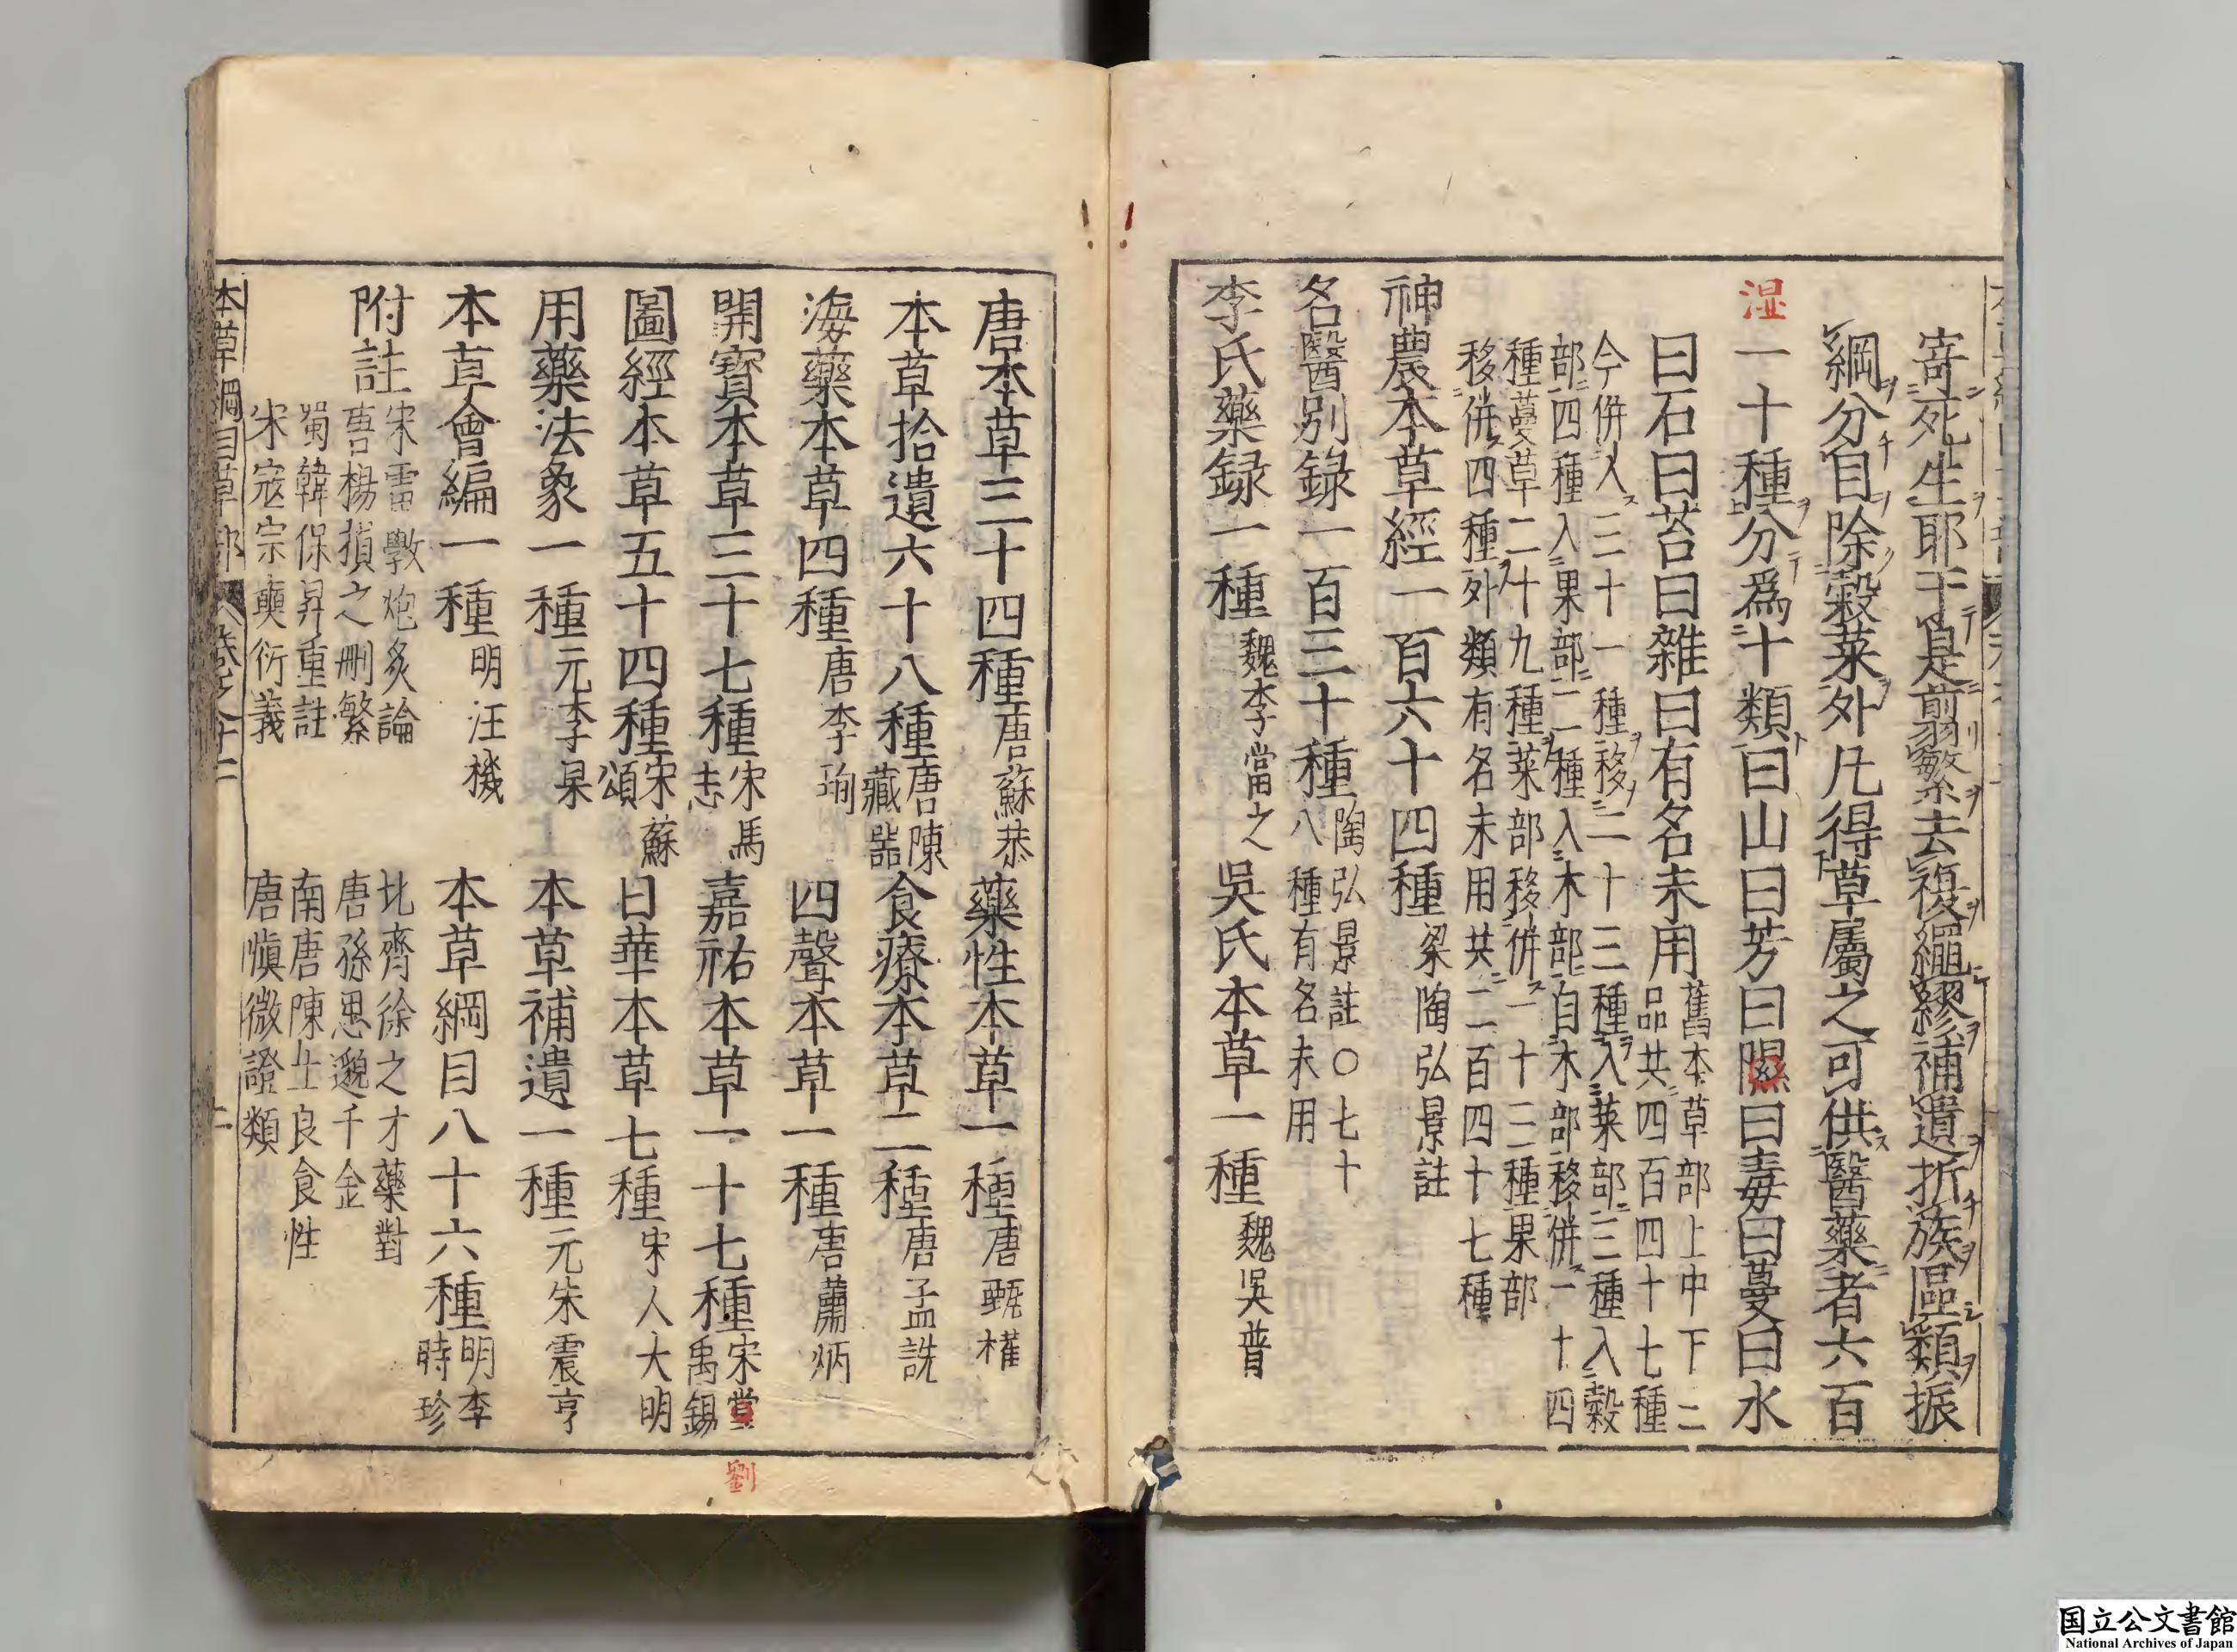 寄死生耶于是翦繁去複繩繆補遺折族區類振
綱分目除穀菜外凡得草屬之可供醫藥者六百
一十種分爲十類曰山曰芳曰隰曰毒曰蔓曰水
湿
曰石曰苔曰雜曰有名未用舊本草部上中下三
品共四百四十七種
今併入三十一種移二十三種入菜部三種入穀
部四種入果部二種入木部自木部移併一十四
種蔓草二十九種菜部移併一十三種果部
移併四種外類有名未用共二百四十七種
神農本草經一百六十四種梁陶弘景註
名醫別錄一百三十種陶弘景註○七十
八種有名未用
李氏藥録一種魏李當之 吳氏本草一種魏吳普
唐本草三十四種唐蘇恭 藥性本草一種唐甄權
本草拾遺六十八種唐陳藏器 食療本草二種唐孟詵
海藥本草四種唐李珣 四聲本草一種唐蕭炳
開寶本草三十七種宋馬志 嘉祐本草一十七種宋掌禹錫
劉
圖經本草五十四種宋蘇頌 日華本草七種宋人大明
用藥法象一種元李杲 本草補遺一種元朱震亨
本草會編一種明汪機 本草綱目八十六種明李時珍
附註 宋雷斆炮炙論 北齊徐之才藥對
唐楊損之刪繁 唐孫思邈千金
蜀韓保昇重註 南唐陳士良食性
宋寇宗奭衍義 唐慎微證類
本草綱目草部 卷之十二 二
国立公文書館
National Archives of Japan